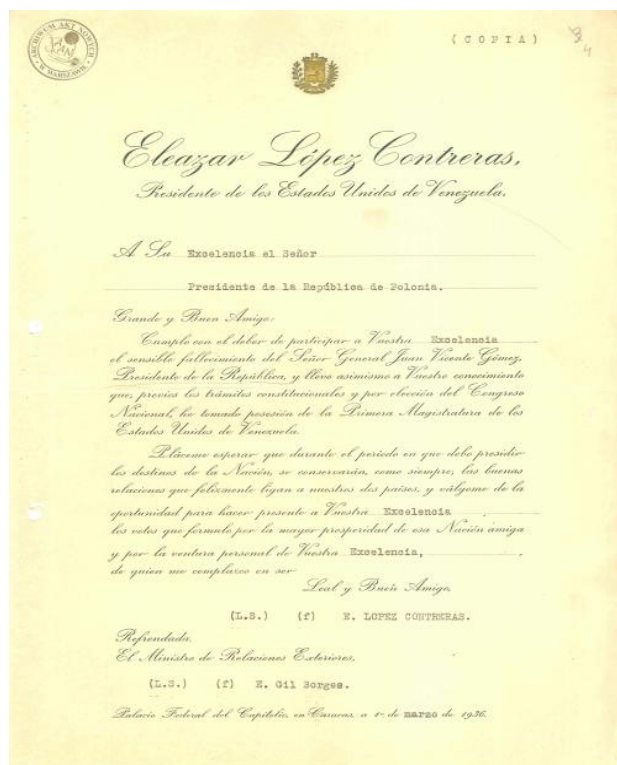 ARCHIWUM AKT NOWYCH
W WARSZAWIE
(COPIA)
4
Eleazar López Contreras,
Presidente de los Estados Unidos de Venezuela.
A Su Excelencia el Señor
Presidente de la República de Polonia.
Grande y Buen Amigo:
Cumplo con el deber de participar a Vuestra Excelencia
el sensible fallecimiento del Señor General Juan Vicente Gómez,
Presidente de la República, y llevo asimismo a Vuestro conocimiento
que, previos los trámites constitucionales y por elección del Congreso
Nacional, he tomado posesión de la Primera Magistratura de los
Estados Unidos de Venezuela.
Pláceme esperar que durante el período en que debo presidir
los destinos de la Nación, se conservarán, como siempre, las buenas
relaciones que felizmente ligan a nuestros dos países, y válgome de la
oportunidad para hacer presente a Vuestra Excelencia
los votos que formulo por la mayor prosperidad de esa Nación amiga
y por la ventura personal de Vuestra Excelencia,
de quien me complazco en ser
Leal y Buen Amigo,
(L.S.) (f) E. LOPEZ CONTRERAS.
Refrendada.
El Ministro de Relaciones Exteriores,
(L.S.) (f) E. Gil Borges.
Palacio Federal del Capitolio, en Caracas, a 1º de marzo de 1936.